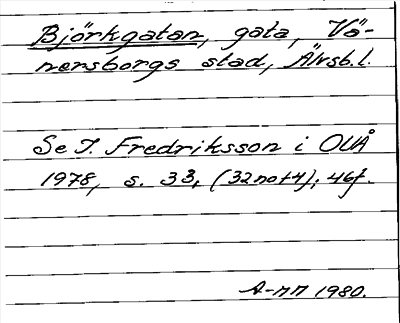 Björkgatan, gata, Vä-
nersborgs stad, Älvsb.l.
Se I. Fredriksson i OUÅ
1978, s. 33, (32 not 4); 46f.
A-MM 1980.